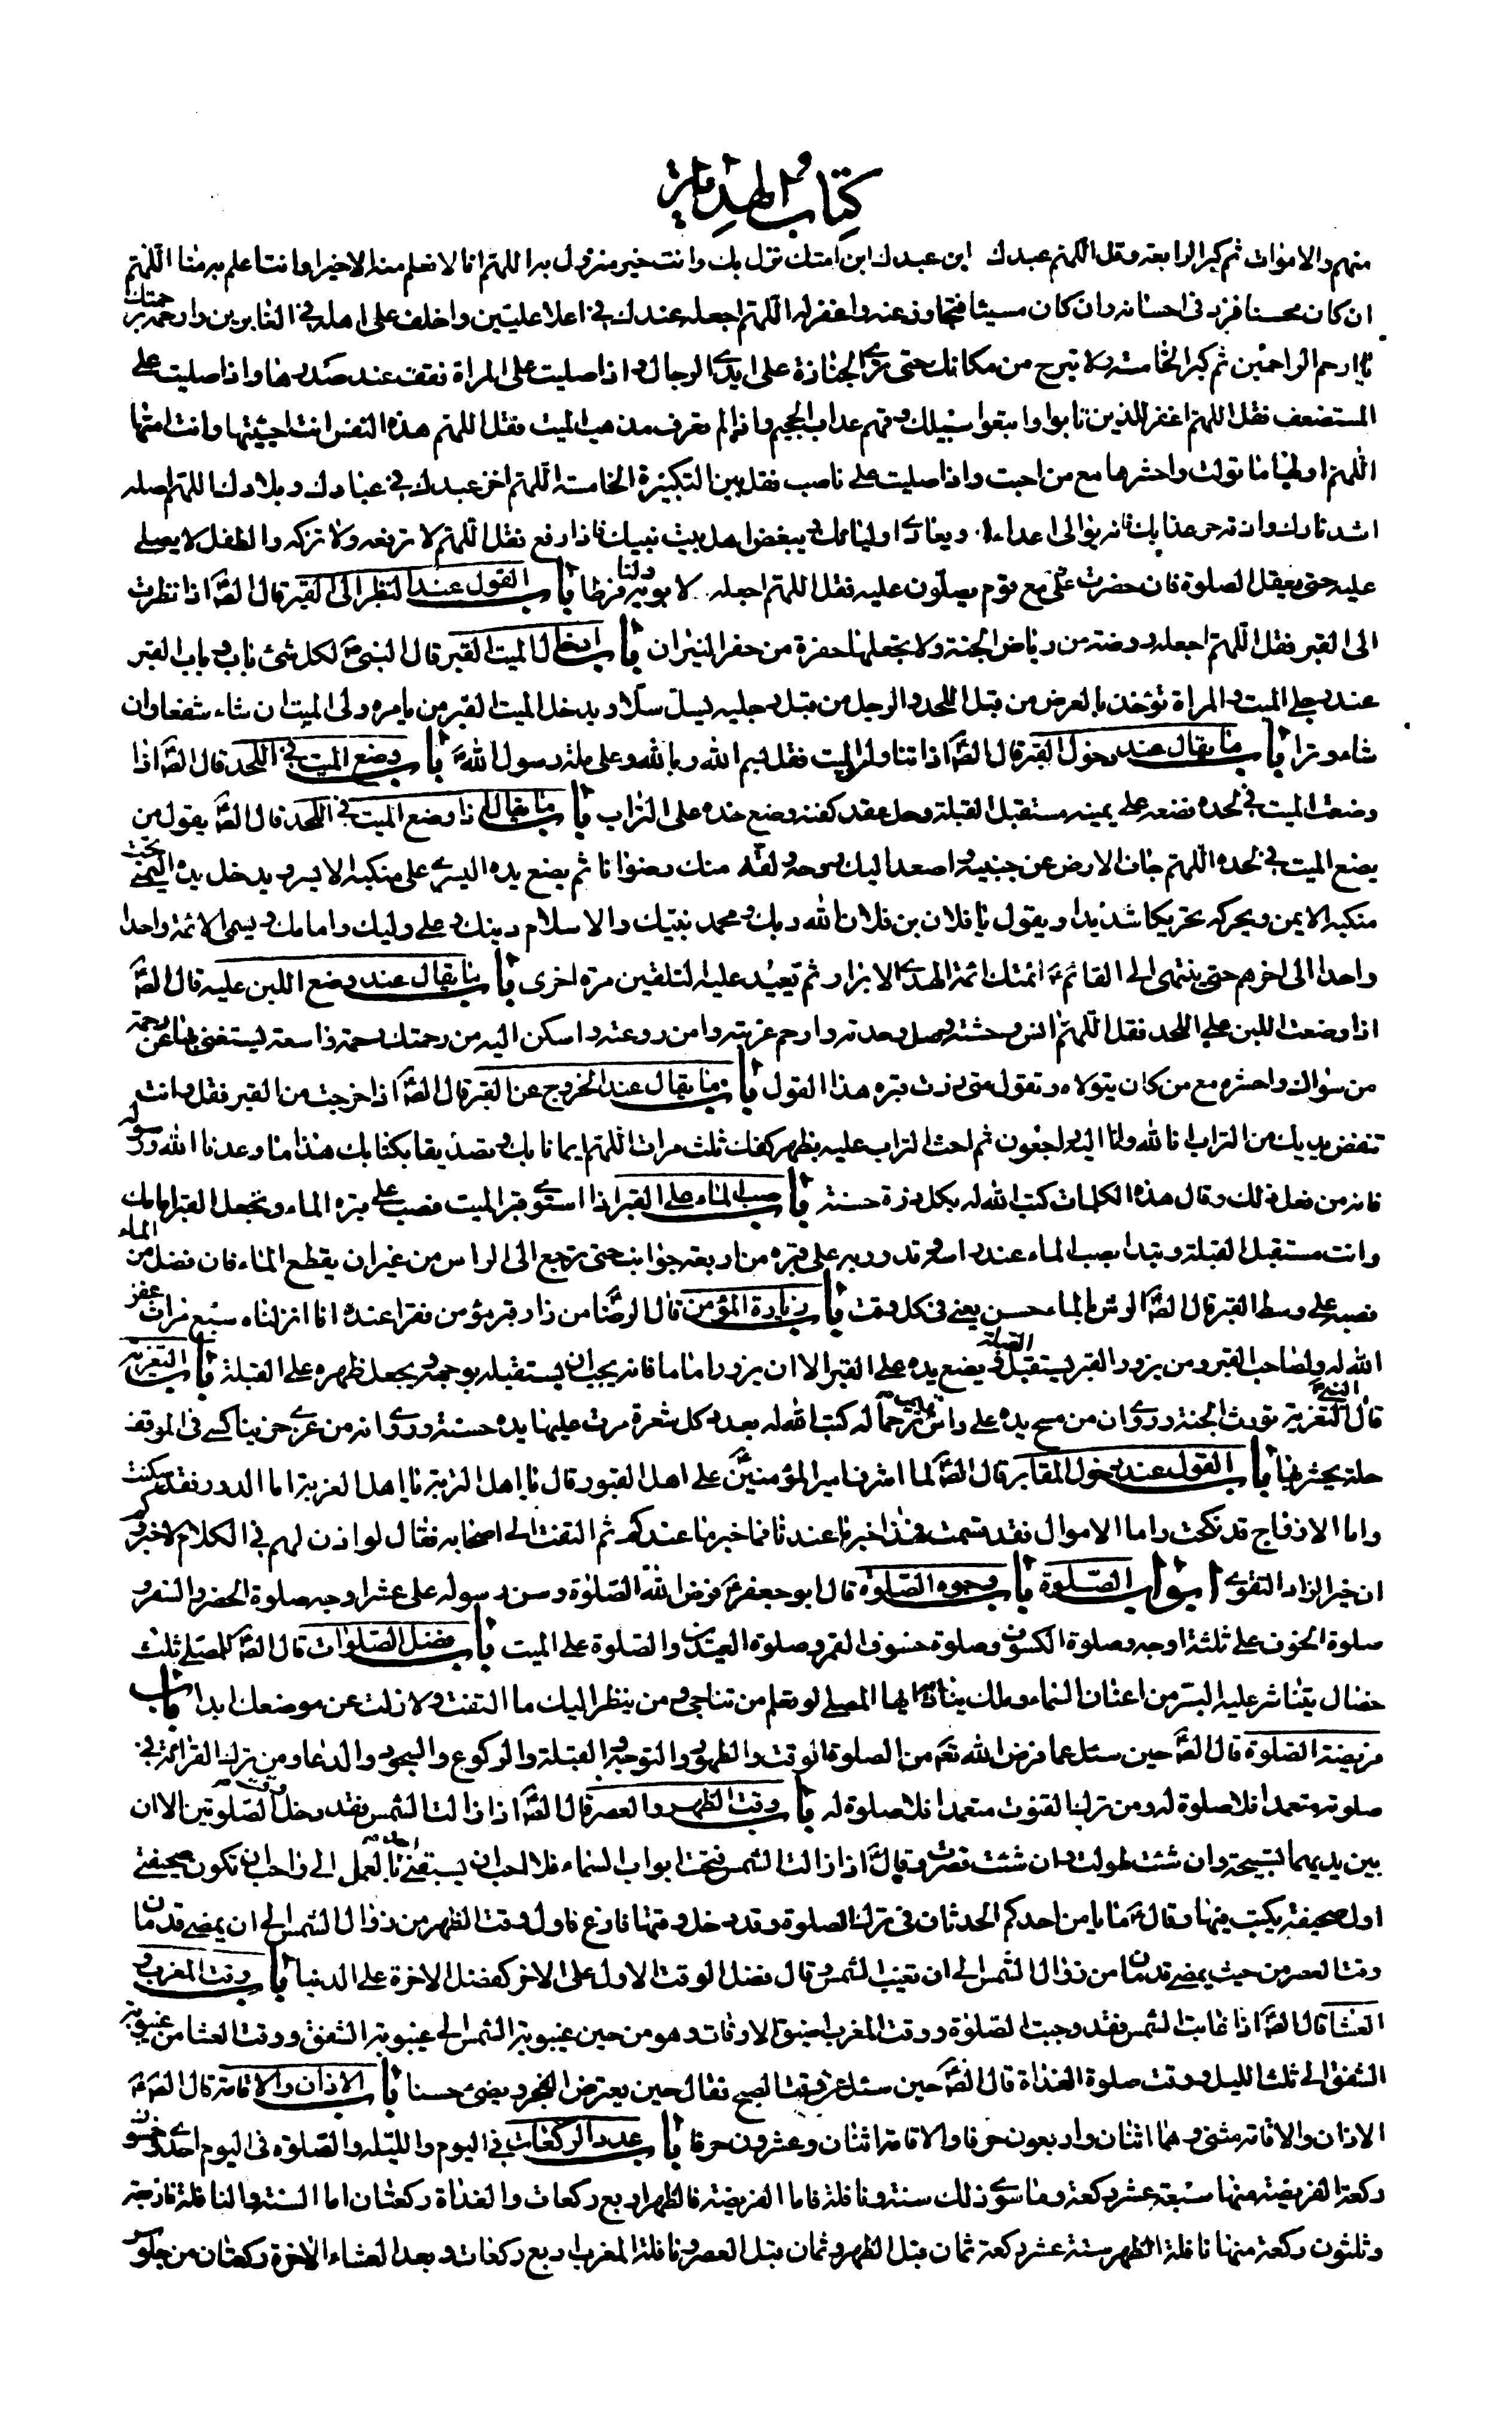 كتاب الهداية
منهم والاموات ثم كبر الرابعة وقل اللهم عبدك ابن عبدك ابن امتك نزل بك وانت خير منزول به اللهم انا لا نعلم منه الا خيرا وانت اعلم به منا اللهم
ان كان محسنا فزد فى احسانه وان كان مسيئا فتجاوز عنه واغفر له اللهم اجعله عندك فى اعلا عليين واخلف على اهله فى الغابرين وارحمه برحمتك
يا ارحم الراحمين ثم كبر الخامسة ولا تبرح من مكانك حتى ترى الجنازة على ايدى الرجال واذا صليت على المراة فقف عند صدرها واذا صليت على
المستضعف فقل اللهم اغفر للذين تابوا واتبعوا سبيلك وقهم عذاب الجحيم واذا لم تعرف مذهب الميت فقل اللهم هذه النفس انت احييتها وانت امتها
اللهم اولها ما تولت واحشرها مع من احبت واذا صليت على ناصب فقل بين التكبيرة الخامسة اللهم اخز عبدك فى عبادك وبلادك اللهم اصله
اشد نارك واذقه حر عذابك فانه يوالى اعداءك ويعادى اوليائك ويبغض اهل بيت نبيك فاذا رفع فقل اللهم لا ترفعه ولا تزكه والطفل لا يصلى
عليه حتى يعقل الصلوة فان حضرت مع قوم يصلون عليه فقل اللهم اجعله لابويه ولنا فرطا باب القول عند النظر الى القبر قال الصّ اذا نظرت
الى القبر فقل اللهم اجعله روضة من رياض الجنة ولا تجعلها حفرة من حفر النيران باب ادخال الميت القبر قال النبى لكل شئ باب وباب القبر
عند رجلى الميت والمراة تؤخذ بالعرض من قبل اللحد والرجل من قبل رجليه يسل سلا ويدخل الميت القبر من يامره ولى الميت ان شاء شفعا وان
شاء وترا باب ما يقال عند دخول القبر قال الصّ اذا تناولت الميت فقل بسم الله وبالله وعلى ملة رسول الله باب وضع الميت فى اللحد قال الصّ اذا
وضعت الميت فى لحده فضعه على يمينه مستقبل القبلة وحل عقد كفنه وضع خده على التراب باب ما يقال اذا وضع الميت فى اللحد قال الصّ يقول من
يضع الميت فى لحده اللهم جاف الارض عن جنبيه واصعد اليك روحه ولقه منك رضوانا ثم يضع يده اليسرى على منكبه الايسر ويدخل يده اليمنى تحت
منكبه الايمن ويحركه تحريكا شديدا ويقول يا فلان بن فلان الله ربك ومحمد نبيك والاسلام دينك وعلى وليك وامامك ويسمى الائمة واحدا
واحدا الى اخرهم حتى ينتهى الى القائم ائمتك ائمة الهدى الابرار ثم تعيد عليه التلقين مرة اخرى باب ما يقال عند وضع اللبن عليه قال الصّ
اذا وضعت اللبن على اللحد فقل اللهم انس وحشته وصل وحدته وارحم غربته وامن روعته واسكن اليه من رحمتك رحمة واسعة يستغنى بها عن رحمة
من سواك واحشره مع من كان يتولاه وتقول متى زرت قبره هذا القول باب ما يقال عند الخروج عن القبر قال الصّ اذا خرجت من القبر فقل وانت
تنفض يديك من التراب انا لله وانا اليه راجعون ثم احث التراب عليه بظهر كفك ثلث مرات اللهم ايمانا بك وتصديقا بكتابك هذا ما وعدنا الله ورسوله
فانه من فعل ذلك وقال هذه الكلمات كتب الله له بكل ذرة حسنة باب صب الماء على القبر اذا استوى قبر الميت فصب على قبره الماء وتجعل القبر امامك
وانت مستقبل القبلة وتبدا بصب الماء عند راسه وتدور به على قبره من اربعة جوانبه حتى ترجع الى الراس من غير ان يقطع الماء فان فضل من الماء
فصبه على وسط القبر قال الصّ الرش بالماء حسن يعنى فى كل وقت باب زيارة المؤمن قال الرضا من زار قبر مؤمن فقرا عنده انا انزلناه سبع مرات غفر
الله له ولصاحب القبر ومن يزور القبر يستقبل القبلة ويضع يده على القبر الا ان يزور اماما فانه يجب ان يستقبله بوجهه ويجعل ظهره على القبلة باب التعزية
قال النبى التعزية تورث الجنة وروى ان من مسح يده على راس يتيم ترحما له كتب الله له بعدد كل شعرة مرت عليها يده حسنة وروى انه من عزى حزينا كسى فى الموقف
حلة يحشر بها باب القول عند دخول المقابر قال الصّ لما اشرف امير المؤمنين على اهل القبور قال يا اهل التربة يا اهل الغربة اما الدور فقد سكنت
واما الازواج قد نكحت واما الاموال فقد قسمت فهذا خبر ما عندنا فما خبر ما عندكم ثم التفت الى اصحابه فقال لو اذن لهم فى الكلام لاخبروكم
ان خير الزاد التقوى ابواب الصلوة باب وجوه الصلوة قال ابو جعفر فرض الله الصلوة وسن رسوله على عشر اوجه صلوة الحضر والسفر و
صلوة الخوف على ثلثة اوجه وصلوة الكسوف وصلوة خسوف القمر وصلوة العيدين والصلوة على الميت باب فضل الصلوات قال الصّ للمصلى ثلث
خصال يتناثر عليه البر من اعنان السماء وملك يناديه ايها المصلى لو تعلم من تناجى ومن ينظر اليك ما التفت ولا زلت عن موضعك ابدا باب
فريضة الصلوة قال الصّ حين سئل عما فرض الله تعم من الصلوة الوقت والطهور والتوجه والقبلة والركوع والسجود والدعاء ومن ترك القرائة فى
صلوته متعمدا فلا صلوة له ومن ترك القنوت متعمدا فلا صلوة له باب وقت الظهر والعصر قال الصّ اذا زالت الشمس فقد دخل وقت الصلوتين الا ان
بين يديهما سبحة وان شئت طولت وان شئت قصرت وقال اذا زالت الشمس فتحت ابواب السماء فلا احب ان يسبقنى احد بالعمل الى واحب ان تكون صحيفتى
اول صحيفة يكتب فيها وقال ما يامن احدكم الحدثان فى ترك الصلوة وقد دخل وقتها فارغ فاول وقت الظهر من زوال الشمس الى ان يمضى قدمان
وقت العصر من حيث يمضى قدمان من زوال الشمس الى ان تغيب الشمس وقال فضل الوقت الاول على الاخر كفضل الاخرة على الدنيا باب وقت المغرب و
العشا قال الصّ اذا غابت الشمس فقد وجبت الصلوة ووقت المغرب اضيق الاوقات وهو من حين غيبوبة الشمس الى غيبوبة الشفق ووقت العشا من غيبوبة
الشفق الى ثلث الليل ووقت صلوة الغداة قال الصّ حين سئل عن وقت الصبح فقال حين يعترض الفجر ويضئ حسنا باب الاذان والاقامة قال الصّ
الاذان والاقامة مثنى وهما اثنان واربعون حرفا والاقامة اثنان وعشرون حرفا باب عدد الركعات فى اليوم والليلة والصلوة فى اليوم احدى وخمسون
ركعة الفريضة منها سبعة عشر ركعة وما سوى ذلك سنة ونافلة فاما الفريضة فالظهر اربع ركعات والغداة ركعتان اما السنة والنافلة فاربعة
وثلثون ركعة منها نافلة الظهر ستة عشر ركعة ثمان قبل الظهر وثمان قبل العصر ونافلة المغرب اربع ركعات وبعد العشاء الاخرة ركعتان من جلوس